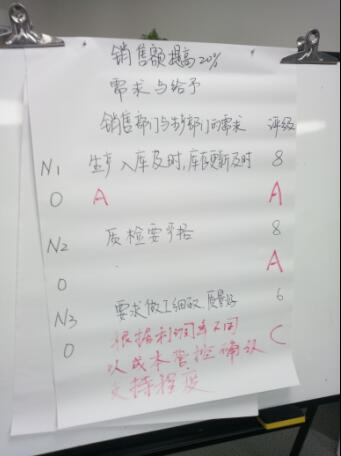 销售额提高20%
需求与给予
销售部门与生产部门的需求 评级
N1 生产入库及时,库存更新及时 8
O A A
N2 质检要严格 8
O A
N3 要求做工细致 质量好 6
O 根据利润率不同
以成本管控确认 C
支持程度